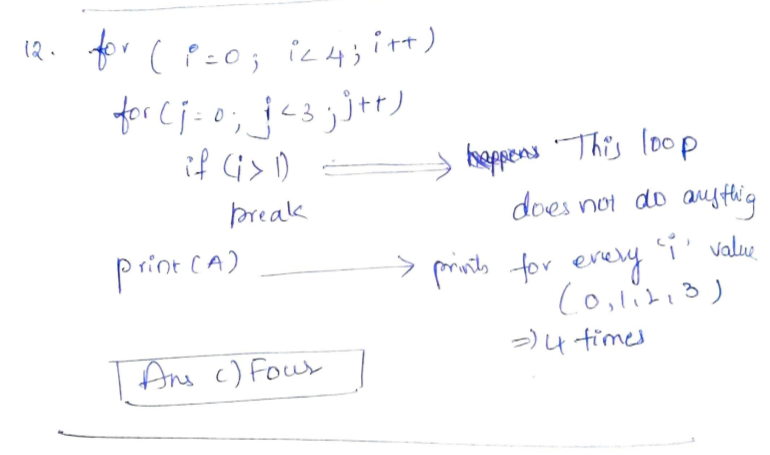 12. for ( i=0; i<4; i++)
for(j=0; j<3; j++)
if (i>1) => This loop
break does not do anythig
print(A) → prints for every 'i' value
(0,1,2,3)
=> 4 times
Ans c) Four